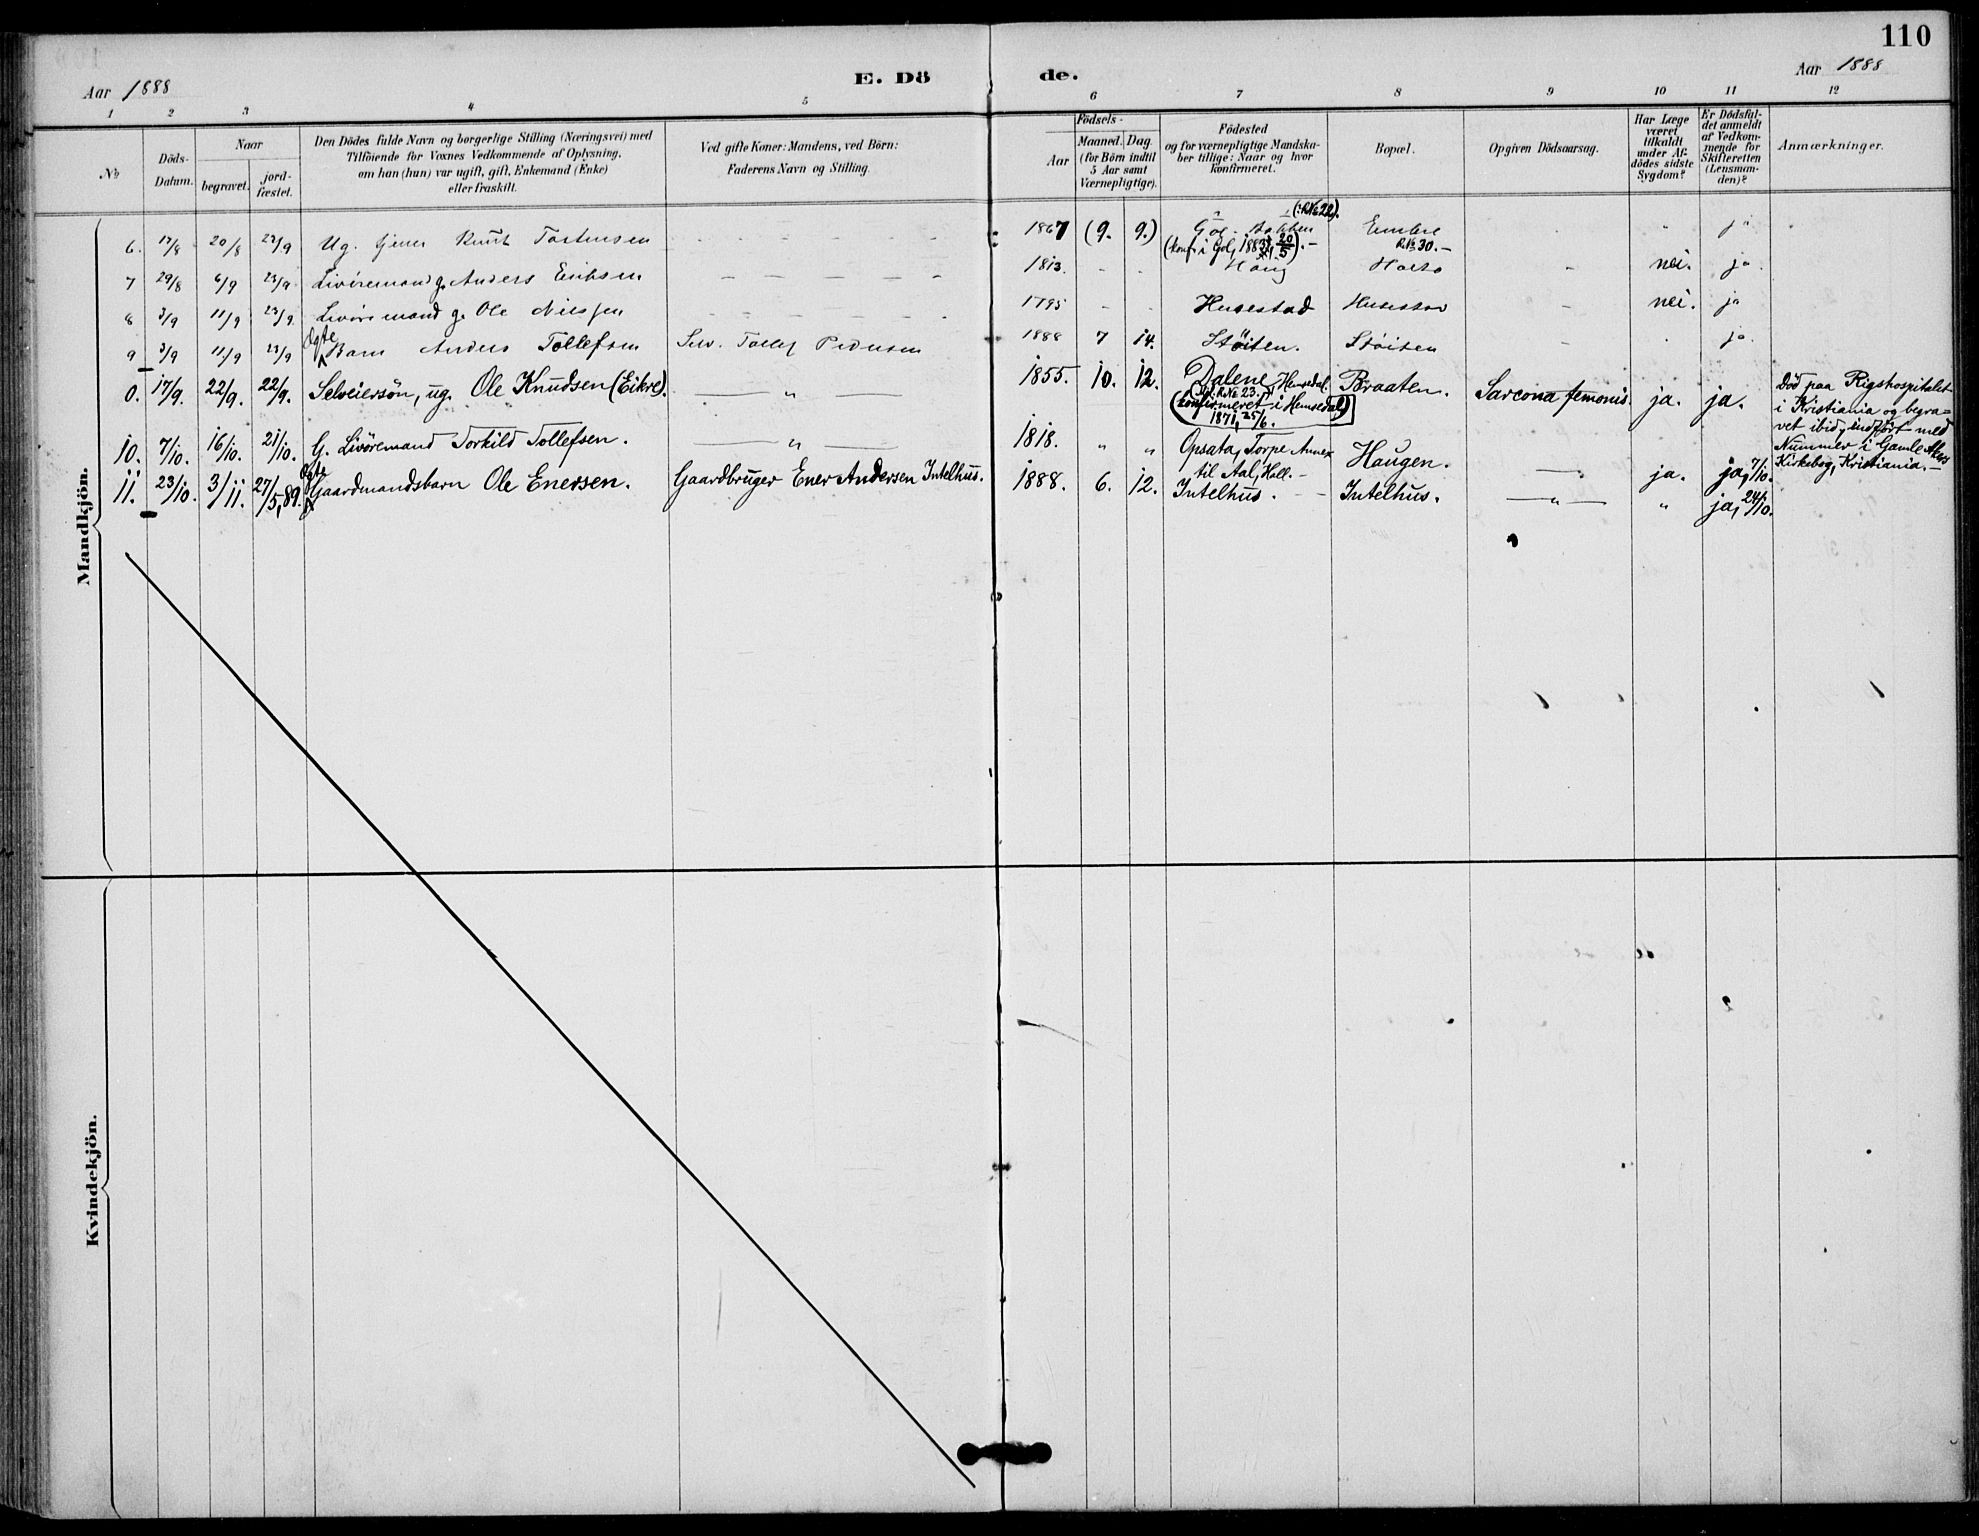 110
Aar 1888
E. Dö
de.
Aar 1888
1 2 3 4 5 6 7 8 9 10 11 12
No
Döds-
Datum.
Naar
begravet.
jord-
fæstet.
Den Dödes fulde Navn og borgerlige Stilling (Næringsvei) med
Tilföiende for Voxnes Vedkommende af Oplysning,
om han (hun) var ugift, gift, Enkemand (Enke)
eller fraskilt.
Ved gifte Koner: Mandens, ved Börn:
Faderens Navn og Stilling.
Födsels-
Aar
Maaned. Dag
(for Börn indtil
5 Aar samt
Værnepligtige).
Födested
og for værnepligtige Mandska-
ber tillige: Naar og hvor
konfirmeret.
Bopæl.
Opgiven Dödsaarsag.
Har Læge
været
tilkaldt
under Af-
dödes sidste
Sygdom?
Er Dödsfal-
det anmeldt
af Vedkom-
mende for
Skifteretten
(Lensman-
den)?
Anmærkninger.
Mandkjön.
6. 17/8 20/8 23/9 Ug. tjener Knut Torstensen 1867 (9. 9.) Gol. (: R.No 22). Embre R.No 30.- ja
(konf. i Gol, 1883, 20/5).-
7 29/8 6/9 23/9 Livöremand g. Anders Eriksen 1813. - - Haug - nei. ja.
8 3/9 11/9 23/9 Livöremand g. Ole Nielsen 1795 - - Husestad Husestad - nei. ja
9 3/9 11/9 23/9 Ægte Barn Anders Tollefsen Selv. Tollef Pedersen 1888 7 14. Stöiten. Stöiten - . ja.
0. 17/9. 22/9. 22/9. Selveiersön, ug. Ole Knudsen (Eikre). — „ — 1855. 10. 12. Dalene, Hemsedal. Braaten. Sarcoma femoris. ja. ja. Död paa Rigshospitalet
R.No 23.
(konfirmeret i Hemsedal)
1871, 25/6.
i Kristiania og begra-
vet ibid., indfört med
Nummer i Gamle Akers
Kirkebog, Kristiania.—
10. 7/10. 16/10. 21/10. G. Livöremand Torkild Tollefsen. — „ — 1818. „ „ Opsata, Torpe Annex
til Aal, Hall.- Haugen. — ja. ja, 7/10.
11. 23/10. 3/11. 27/5,89. Ægte Gaardmandsbarn Ole Enersen. Gaardbruger Ener Andersen Intelhus. 1888. 6. 12. Intelhus. - - Intelhus. — „ — „ ja, 24/10.
Kvindekjön.